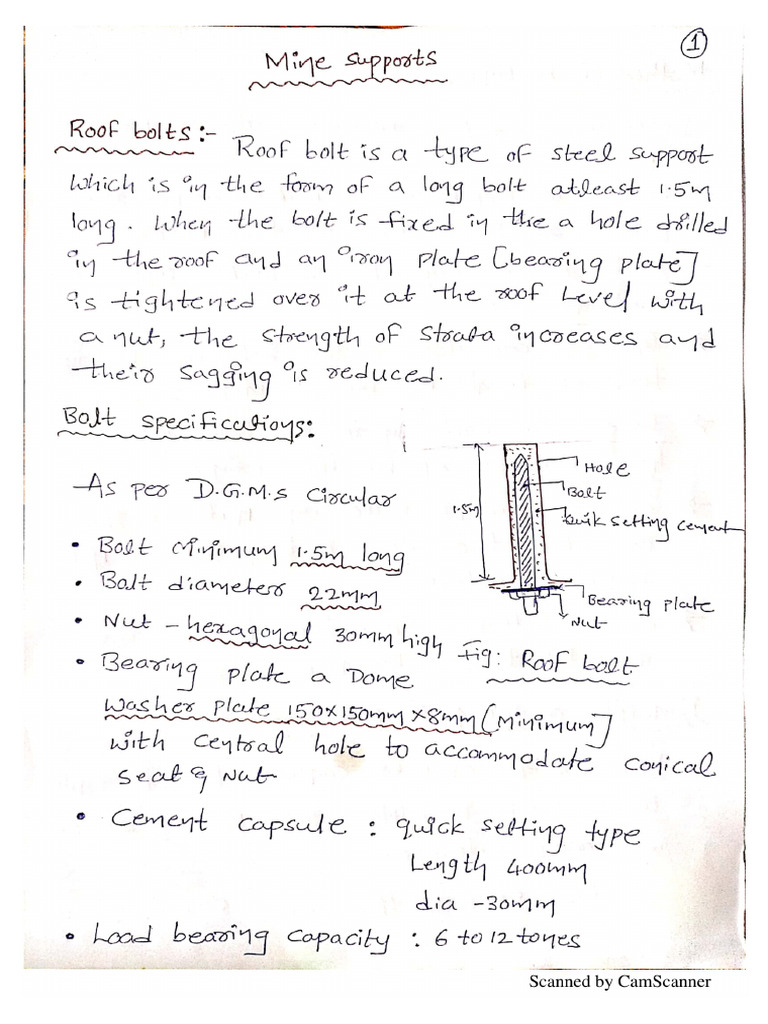 1
Mine supports
Roof bolts :- Roof bolt is a type of steel support
which is in the form of a long bolt atleast 1.5m
long. When the bolt is fixed in the a hole drilled
in the roof and an iron plate [bearing plate]
is tightened over it at the roof Level with
a nut, the strength of strata increases and
their sagging is reduced.
Bolt specifications:
As per D.G.M.s circular
• Bolt minimum 1.5m long
• Bolt diameter 22mm
• Nut - hexagonal 30mm high
• Bearing plate a Dome
washer plate 150x150mm x8mm [minimum]
with central hole to accommodate conical
seat & Nut
• Cement capsule : quick setting type
Length 400mm
dia -30mm
• Load bearing capacity : 6 to 12 tones
1.5m
Hole
Bolt
Quik setting cement
Bearing plate
Nut
Fig: Roof bolt
Scanned by CamScanner